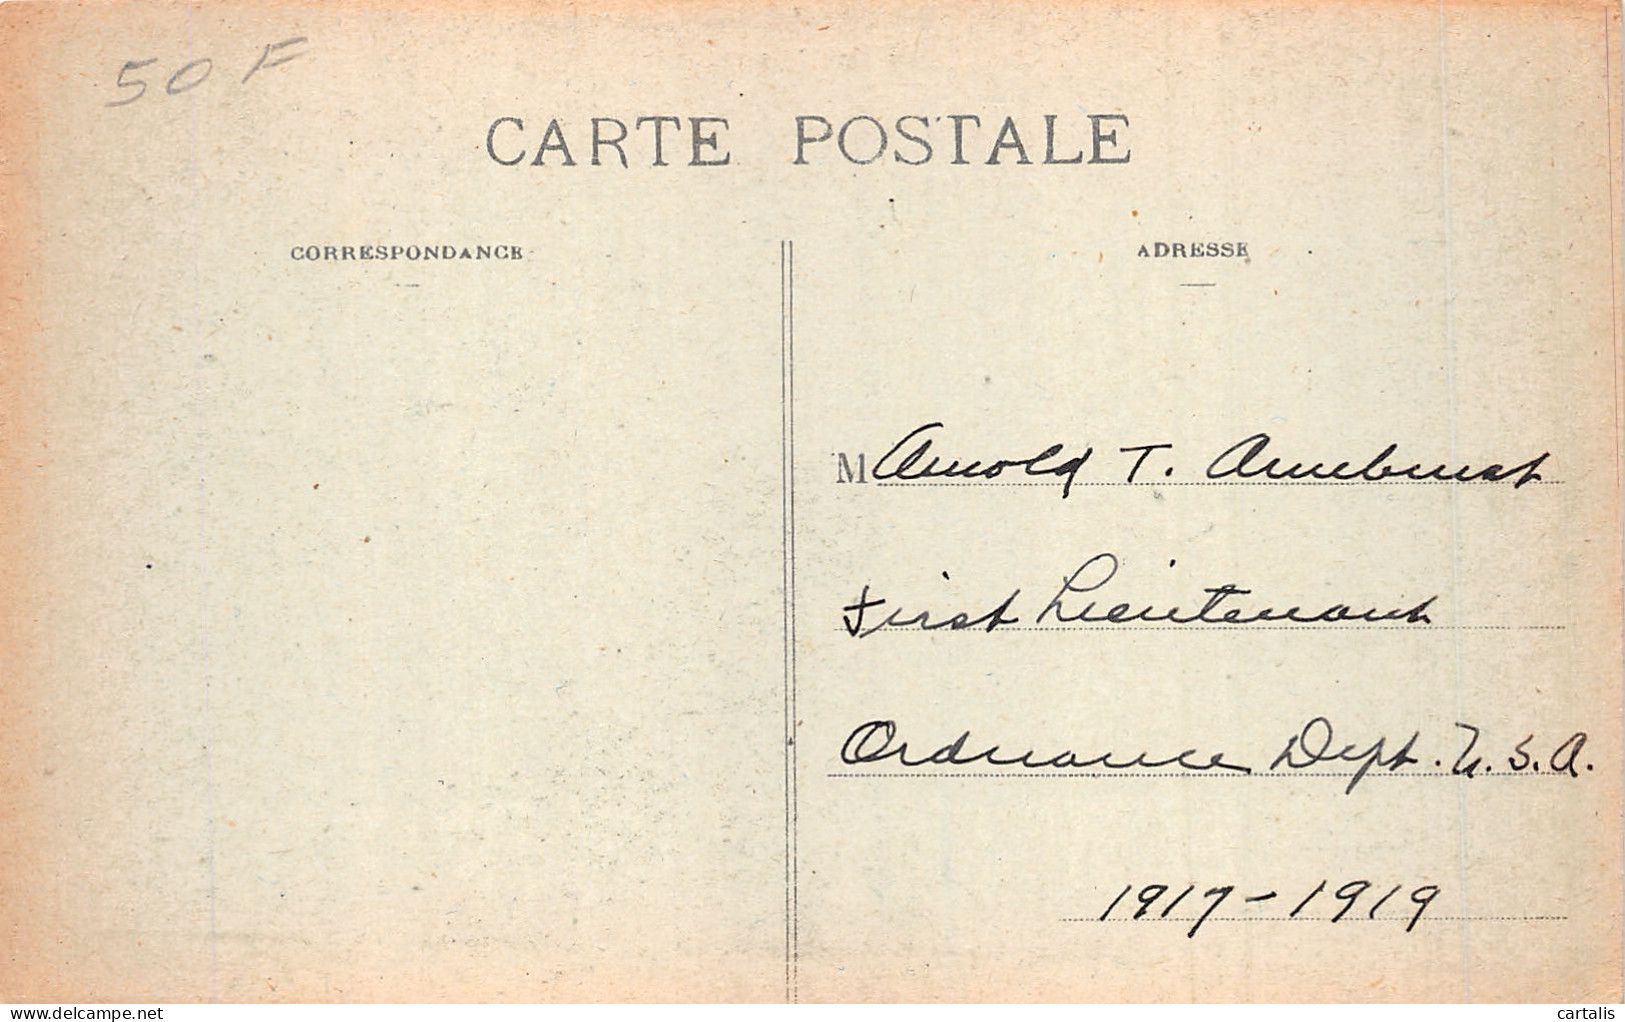 50 F
CARTE POSTALE
CORRESPONDANCE
ADRESSE
M Arnold T. Armbrust
First Lieutenant
Ordnance Dept. U.S.A.
1917-1919
www.delcampe.net
cartalis